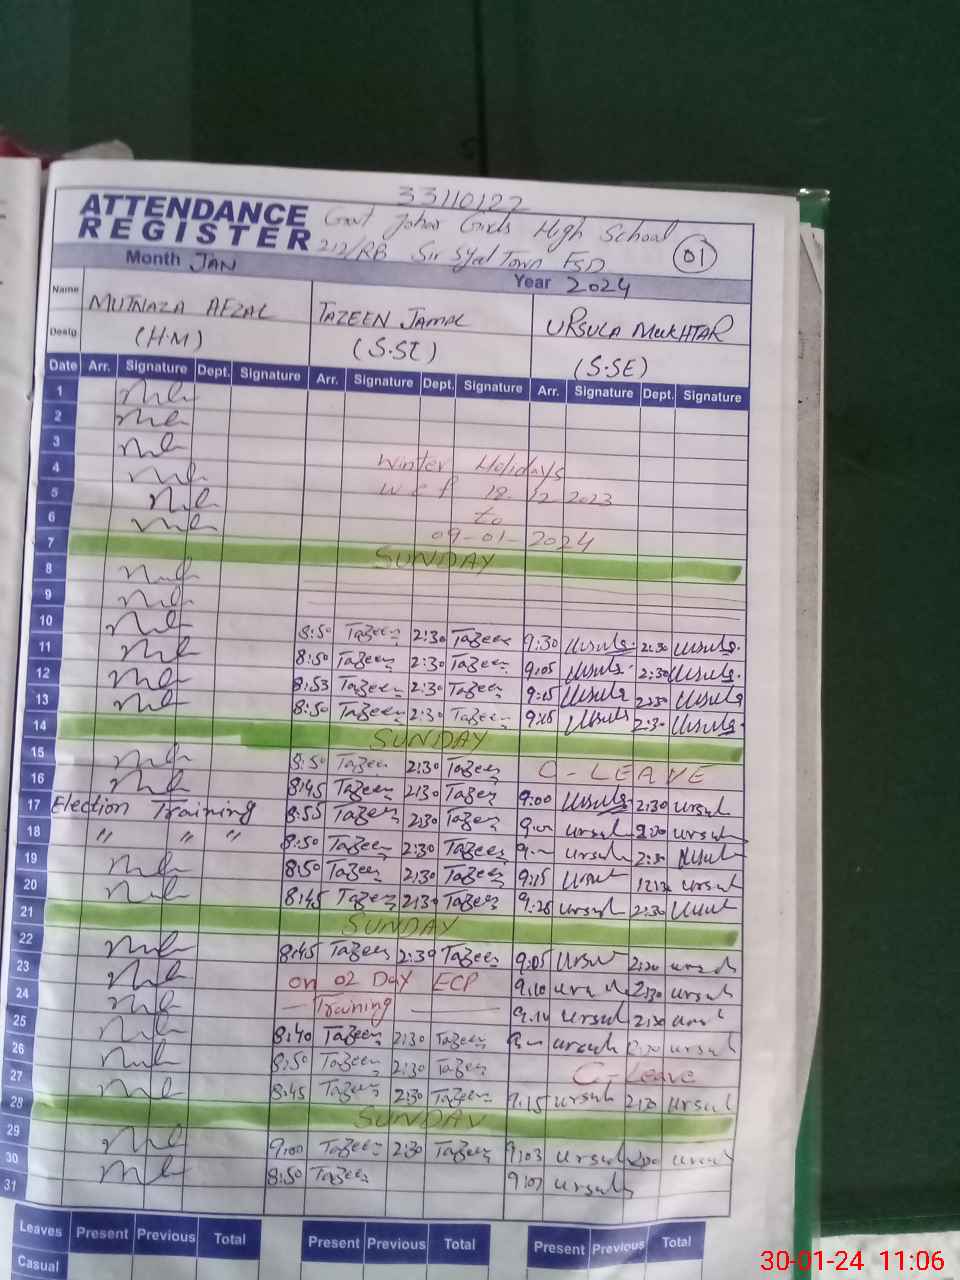 33110127
ATTENDANCE REGISTER
Govt Johar Girls High School
212/RB Sir Syed Town FSD
01
Month JAN Year 2024
Name MUTNAZA AFZAL TAZEEN JAMAL URSULA MUKHTAR
Desig. (H.M) (S.SE) (S.SE)
Date Arr. Signature Dept. Signature Arr. Signature Dept. Signature Arr. Signature Dept. Signature
1
2
3
4 Winter Holidays
5 w e f 18-12-2023
6 to
7 09-01-2024
SUNDAY
8
9
10
11 8:50 Tazeen 2:30 Tazeen 9:30 Ursula 2:30 Ursula
12 8:50 Tazeen 2:30 Tazeen 9:05 Ursula 2:30 Ursula
13 8:53 Tazeen 2:30 Tazeen 9:05 Ursula 2:30 Ursula
14 8:50 Tazeen 2:30 Tazeen Ursula 2:30 Ursula
SUNDAY
15 8:50 Tazeen 2:30 Tazeen C-LEAVE
16 8:45 Tazeen 2:30 Tazeen 9:00 Ursula 2:30 Ursula
17 Election Training 8:55 Tazeen 2:30 Tazeen Ursula Ursula
18 " " " 8:50 Tazeen 2:30 Tazeen Ursula 2:30 Ursula
19 8:50 Tazeen 2:30 Tazeen 9:15 Ursula Ursula
20 8:45 Tazeen 2:30 Tazeen 9:28 Ursula 2:30 Ursula
21 SUNDAY
22 8:45 Tazeen 2:30 Tazeen 9:05 Ursula Ursula
23 on 02 Day ECP 9:10 Ursula 2:30 Ursula
24 Training 9:10 Ursula 2:30 Ursula
25 8:40 Tazeen 2:30 Tazeen Ursula Ursula
26 8:50 Tazeen 2:30 Tazeen C-Leave
27 8:45 Tazeen 2:30 Tazeen 9:15 Ursula 2:30 Ursula
28 SUNDAY
29 9:00 Tazeen 2:30 Tazeen 9:03 Ursula Ursula
30 8:50 Tazeen 9:07 Ursula
31
Leaves Present Previous Total Present Previous Total Present Previous Total
Casual
30-01-24 11:06